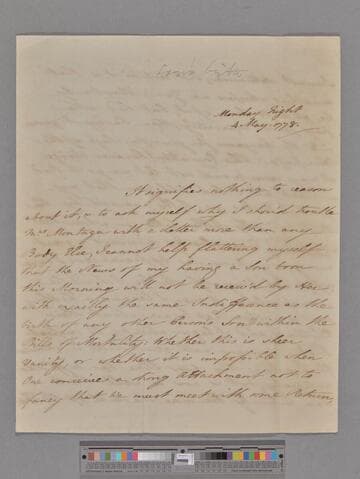 Monday Night
4 May. 1778.
It signifies nothing to reason
about it, or to ask myself why I should trouble
Mrs. Montagu with a Letter more than any
Body Else, I cannot help flattering myself
that the News of my having a Son born
this Morning will not be receiv'd by Her
with exactly the same Indifference as the
Birth of any other Persons Son within the
Bills of Mortality. Whether this is sheer
Vanity, or whether it is impossible when
One conceives a strong Attachment not to
fancy that We must meet with some Return,